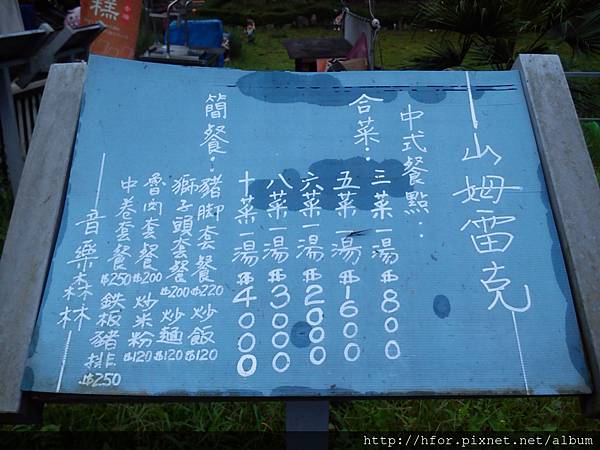 山姆雷克
中式餐點：
合菜：
三菜一湯$800
五菜一湯$1600
六菜一湯$2000
八菜一湯$3000
十菜一湯$4000
簡餐：
豬脚套餐$220 炒飯$120
獅子頭套餐$200 炒麵$120
魯肉套餐$200 炒米粉$120
中卷套餐$250 鉄板豬排$250
音樂森林
糕
http://hfor.pixnet.net/album